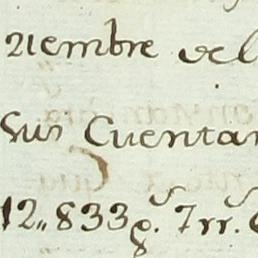 ziembre del
sus Cuentan
12,,833 p.s 7 rr.s